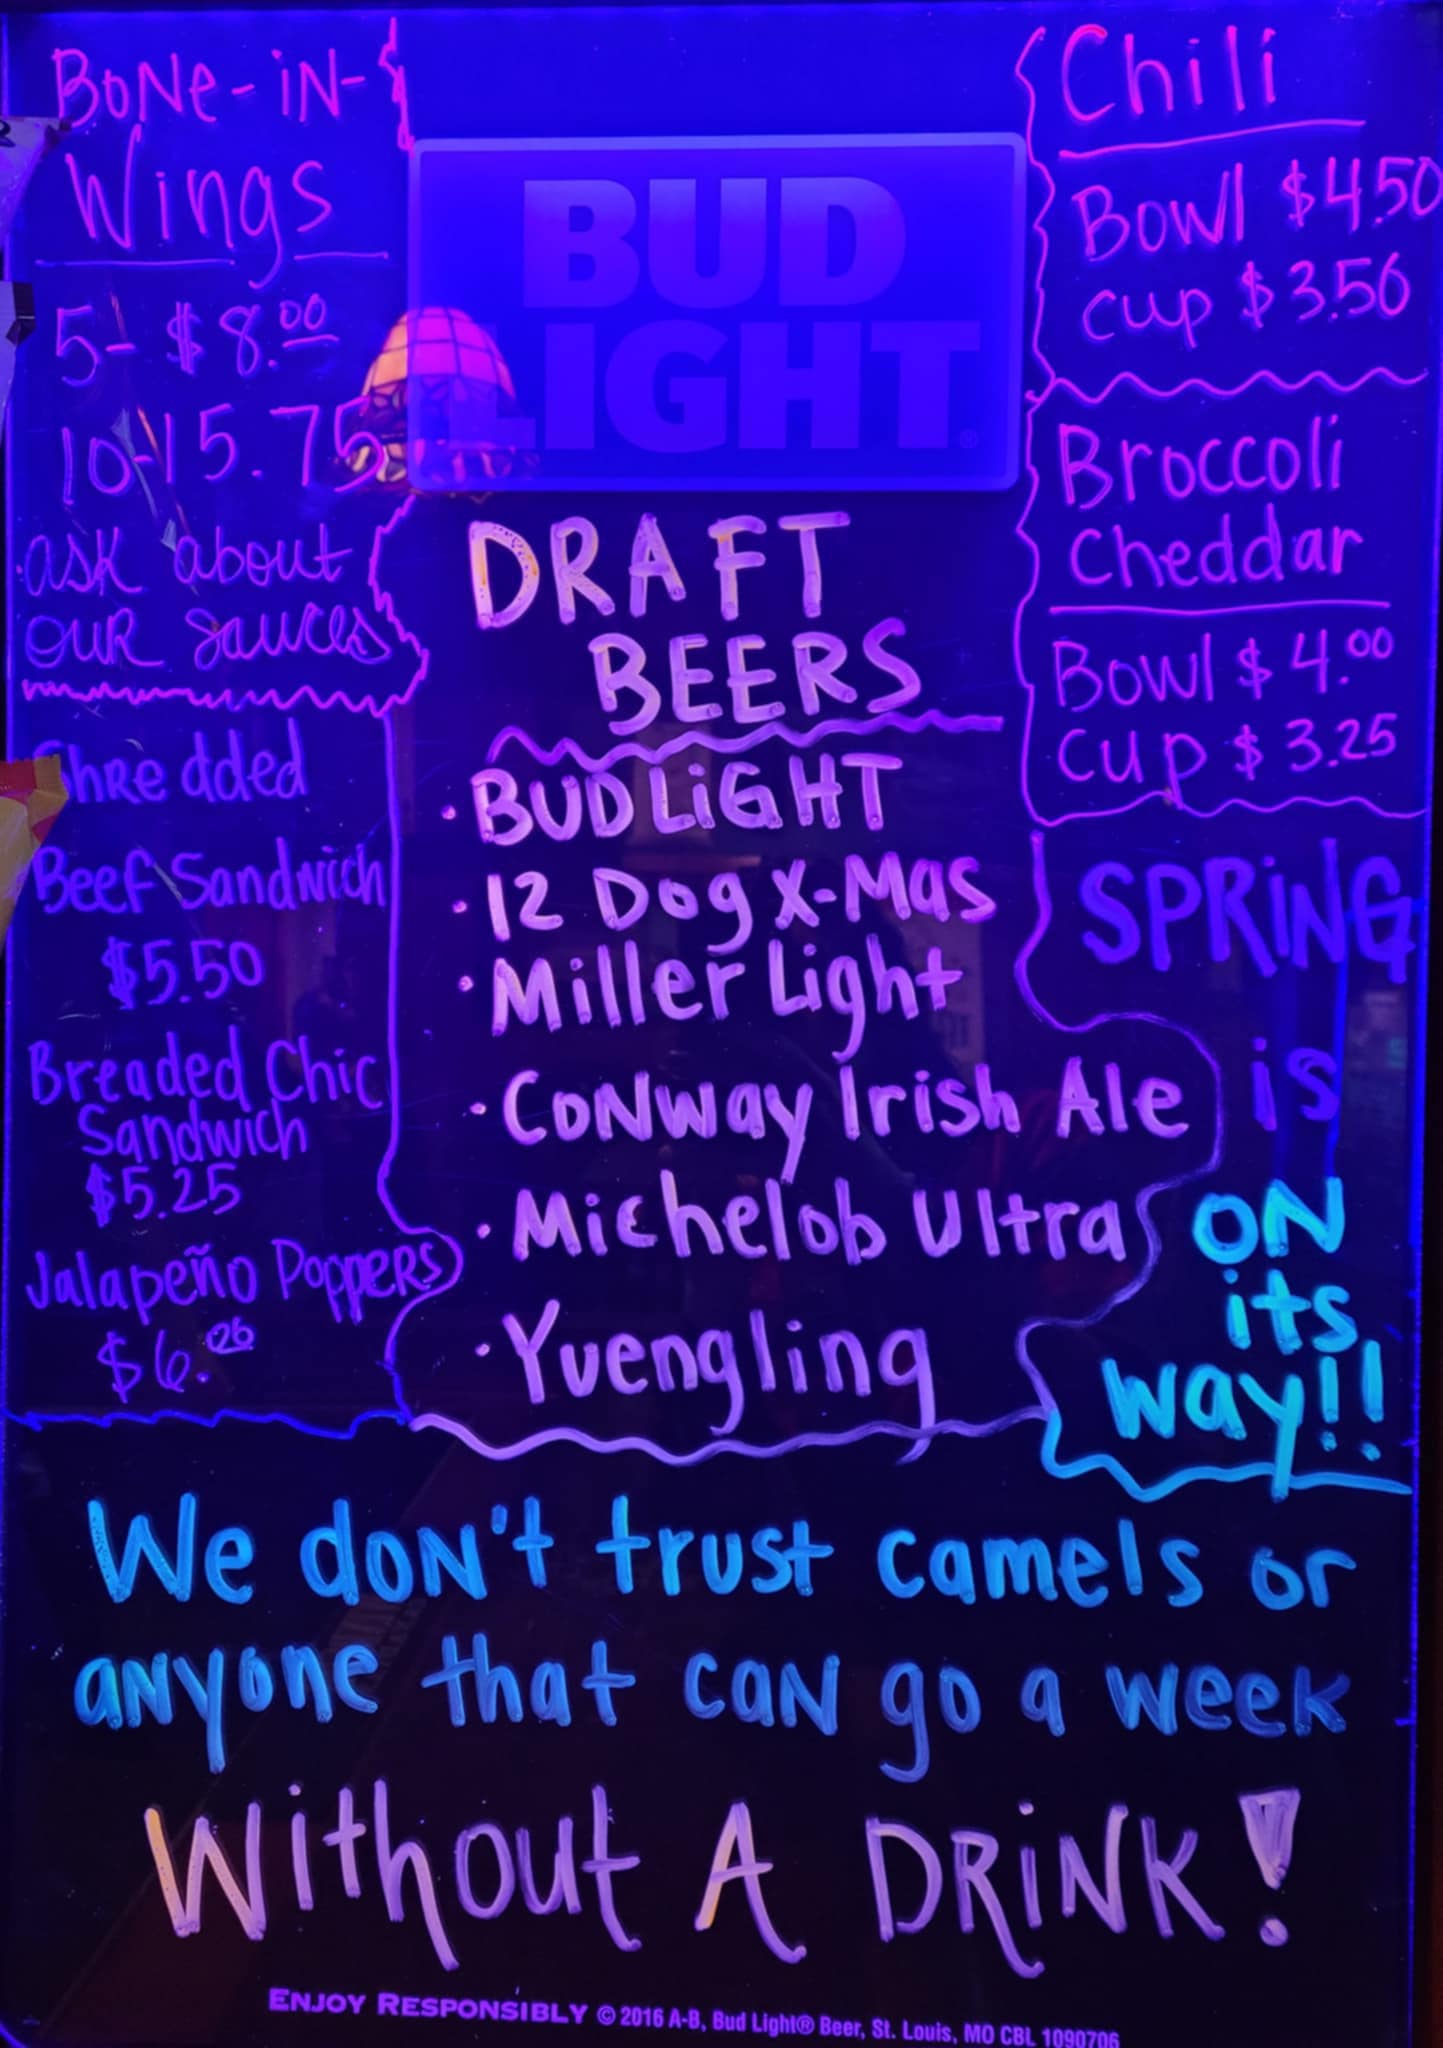 BONe-iN-
Wings
5- $8.00
10-15.75
ask about
our sauces
Shredded
Beef Sandwich
$5.50
Breaded Chic
Sandwich
$5.25
Jalapeño Poppers
BUD
LIGHT®
DRAFT
BEERS
· BUD LiGHT
· 12 Dog X-Mas
· Miller Light
· Conway Irish Ale
· Michelob Ultra
· Yuengling
Chili
Bowl $4.50
cup $3.50
Broccoli
Cheddar
Bowl $4.00
Cup $3.25
SPRiNG
is
ON
its
way!!
We don't trust camels or
anyone that can go a week
Without A DRiNK!
ENJOY RESPONSIBLY © 2016 A-B, Bud Light® Beer, St. Louis, MO CBL 1090706